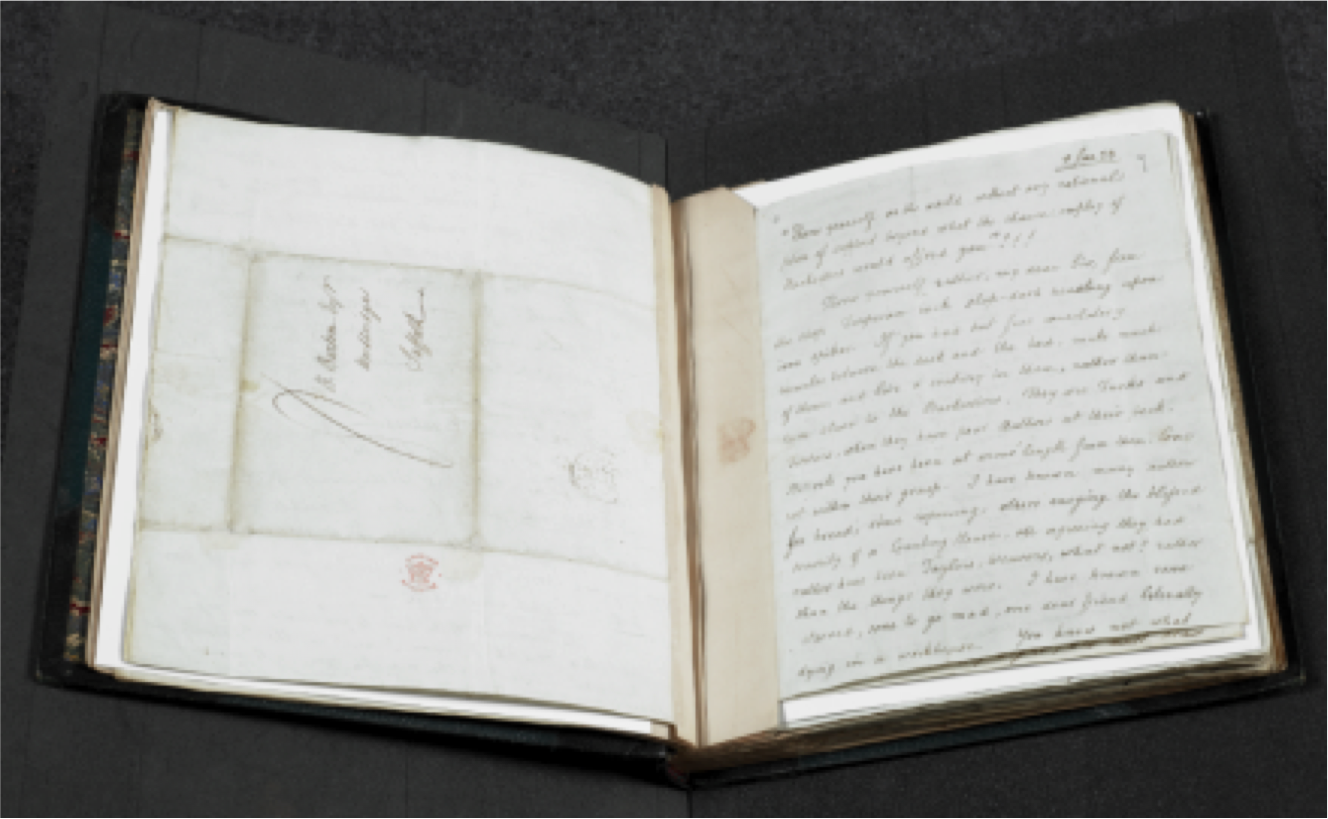 B. Barton Esqr
Woodbridge
Suffolk
9 Jan 23
"Throw yourself on the world without any rational
plan of support beyond what the chance employ of
Booksellers would afford you"!!!
Throw yourself rather, my dear Sir, from
the steep Tarpeian rock, slap-dash headlong upon
iron spikes. If you had but five consolatory
minutes between the desk and the bed, make much
of them, and live a century in them, rather than
turn slave to the Booksellers. They are Turks and
Tartars, when they have poor Authors at their beck.
Hitherto you have been at arm's length from them. Come
not within their grasp. I have known many authors
for bread, some repining, others envying the blessed
security of a Counting House, all agreeing they had
rather have been Taylors, Weavers, what not? rather
than the things they were. I have known some
starved, some to go mad, one dear friend literally
dying in a workhouse. You know not what